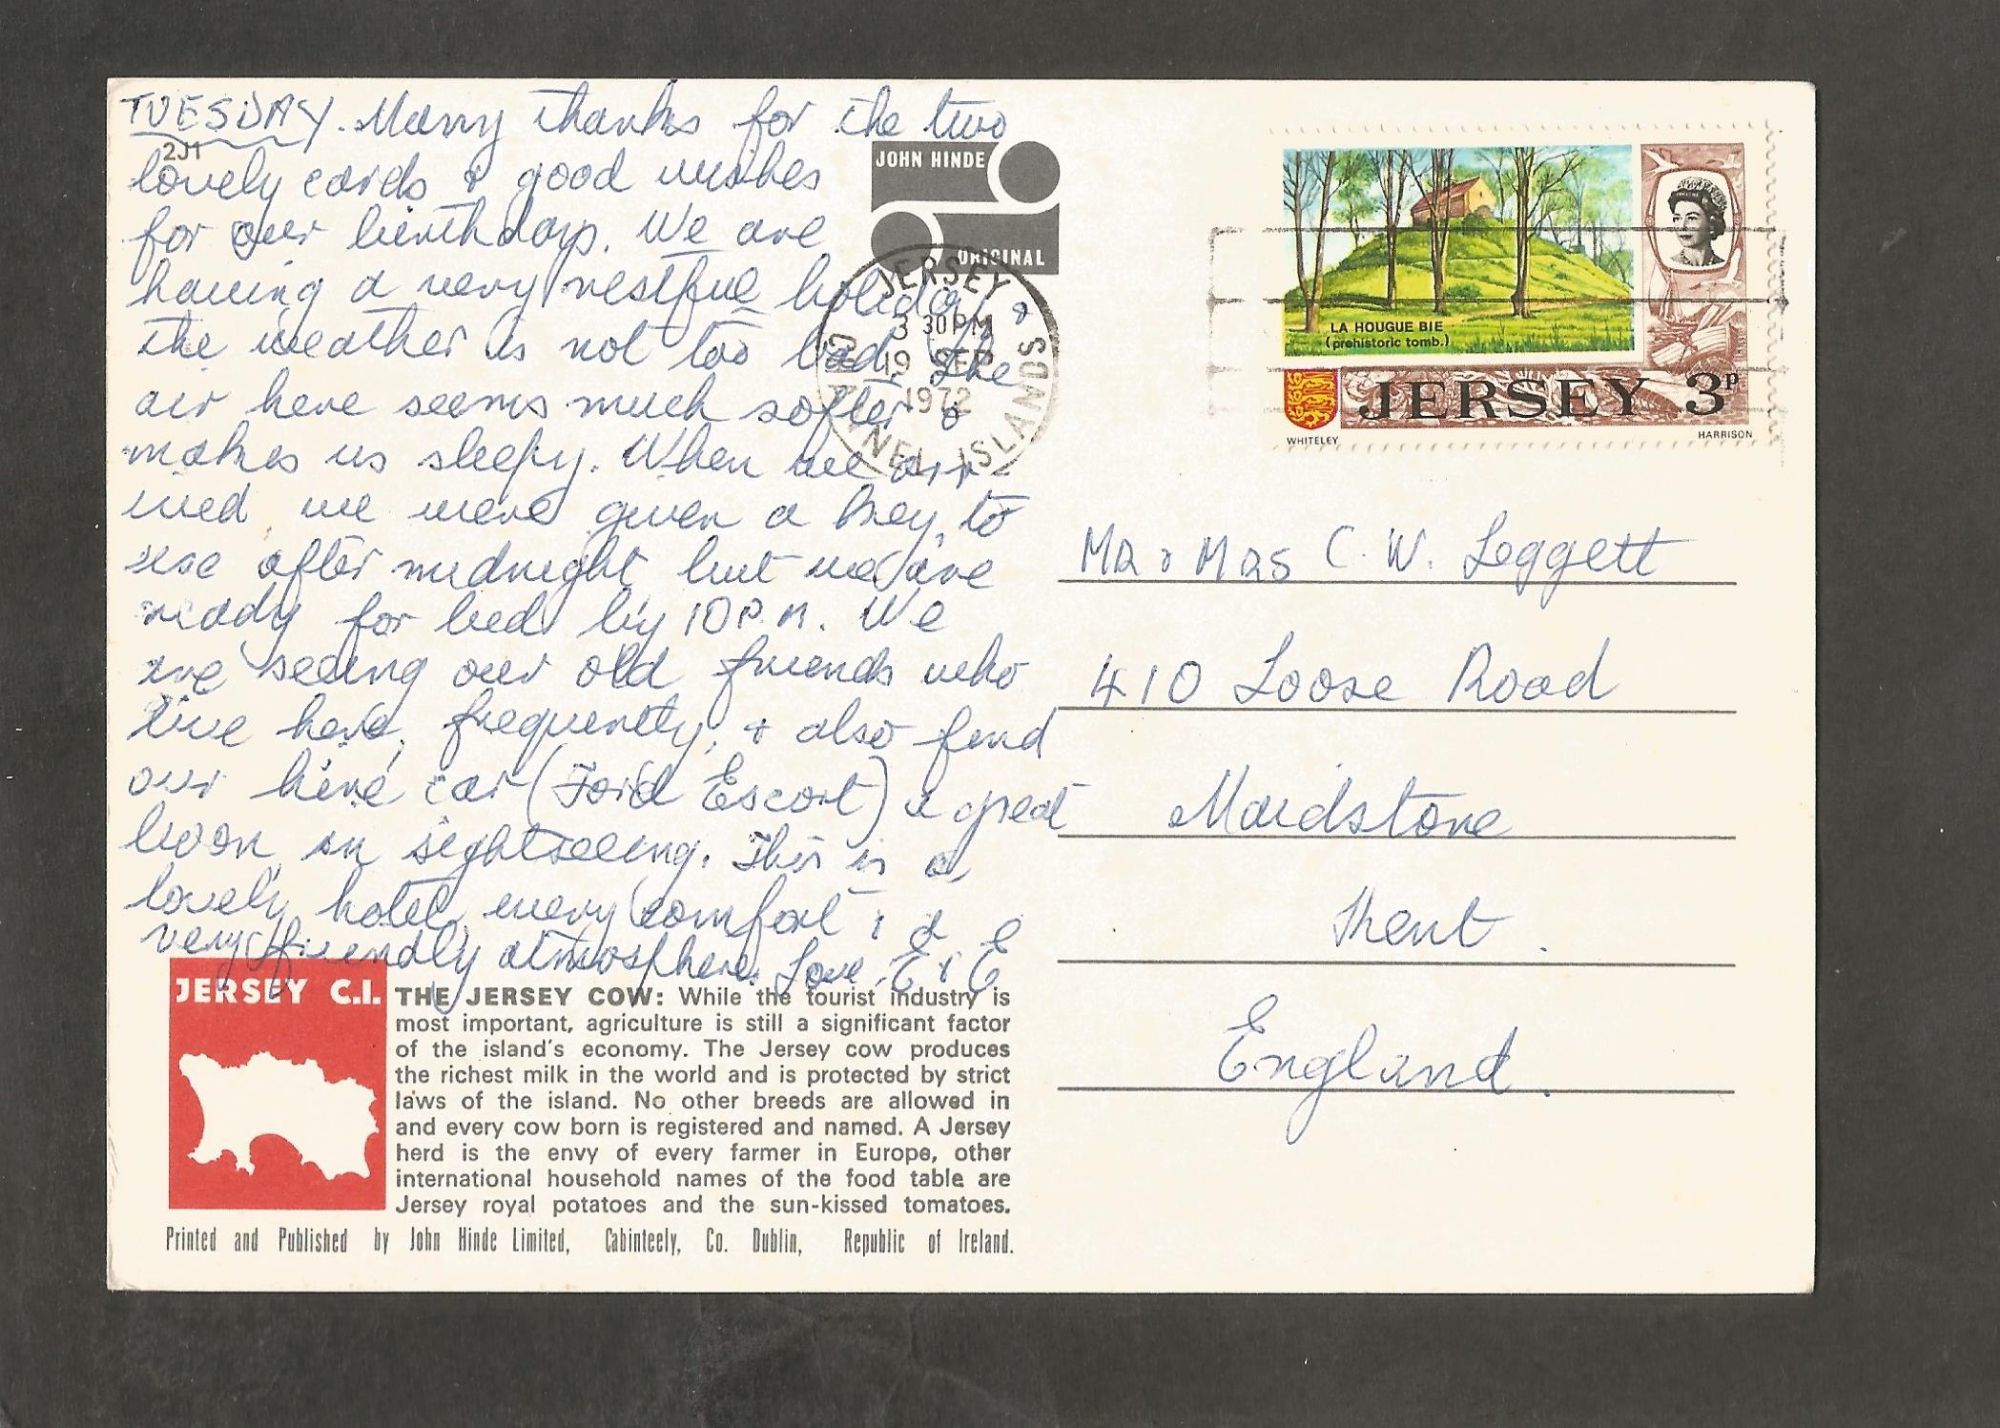 TUESDAY. Many thanks for the two
2J1
lovely cards & good wishes
for our birthdays. We are
having a very restful holiday &
the weather is not too bad. The
air here seems much softer &
makes us sleepy. When we arr-
ived, we were given a key, to
use after midnight, but we are
ready for bed by 10 P.M. We
are seeing our old friends who
live here, frequently, & also find
our hire car (Ford Escort) a great
boon in sightseeing. This is a
lovely hotel, every comfort & a
very friendly atmosphere. Love, E & E
JOHN HINDE
ORIGINAL
JERSEY
3 30 PM
19 SEP
1972
CHANNEL ISLANDS
LA HOUGUE BIE
(prehistoric tomb.)
JERSEY 3p
WHITELEY
HARRISON
MR & MRS C. W. Leggett
410 Loose Road
Maidstone
Kent.
England.
JERSEY C.I.
THE JERSEY COW: While the tourist industry is
most important, agriculture is still a significant factor
of the island's economy. The Jersey cow produces
the richest milk in the world and is protected by strict
laws of the island. No other breeds are allowed in
and every cow born is registered and named. A Jersey
herd is the envy of every farmer in Europe, other
international household names of the food table are
Jersey royal potatoes and the sun-kissed tomatoes.
Printed and Published by John Hinde Limited, Cabinteely, Co. Dublin, Republic of Ireland.